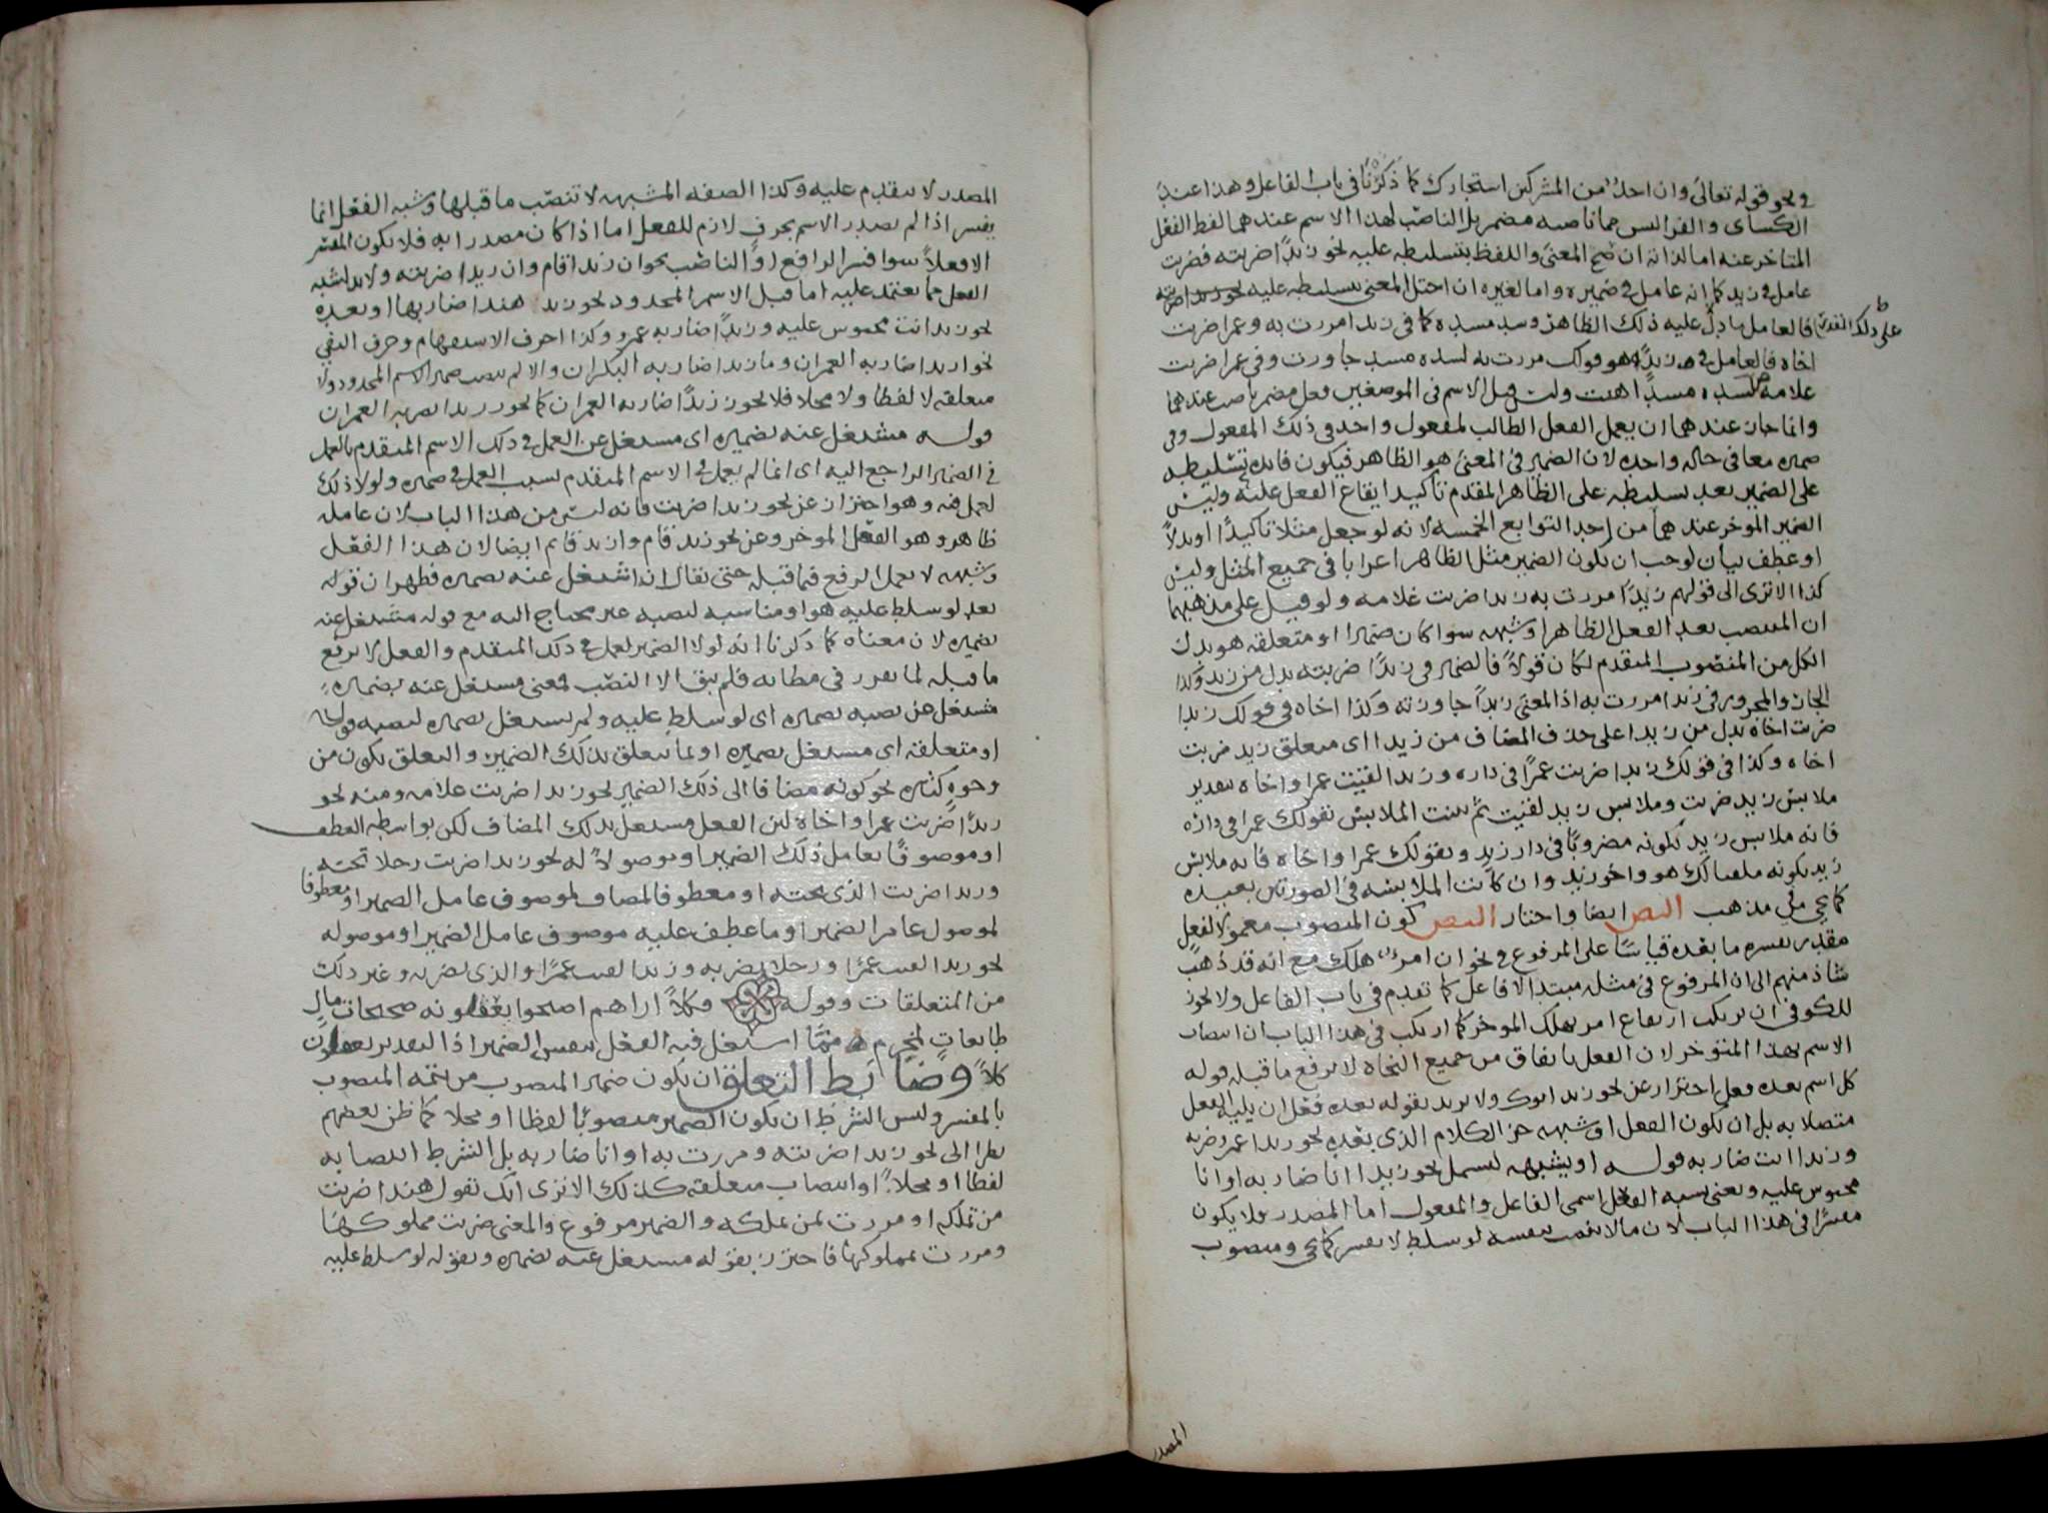 في نحو قوله تعالى وان احد من المشركين استجارك كما ذكرنا في باب الفاعل وهذا عند
الكسائي والفرا ليس مما ناصبه مضمر بل الناصب لهذا الاسم عندهما لفظ الفعل
المتاخر عنه اما لذاته ان صح المعنى واللفظ بتسليطه عليه نحو زيدا ضربته فضربت
عامل في زيد كما انه عامل في ضميره واما لغيره ان اختل المعنى بتسليطه عليه
فالعامل ما دل عليه ذلك الظاهر وسد مسده كما في زيدا مررت به وعمرا ضربت
اخاه فالعامل في زيدا هو قولك مررت به لسده مسد جاوزت وفي عمرا ضربت
غلامه لسده مسد اهنت وليس قبل الاسم في الموضعين فعل مضمر ناصب عندهما
وانما جاز عندهما ان يعمل الفعل الطالب لمفعول واحد في ذلك المفعول وفي
ضميره معا في حالة واحدة لان الضمير في المعنى هو الظاهر فيكون فائدة تسليطه
على الضمير بعد تسليطه على الظاهر المقدم تأكيد ايقاع الفعل عليه وليس
الضمير المؤخر عندهما من احد التوابع الخمسة لانه لو جعل مثلا تأكيدا او بدلا
او عطف بيان لوجب ان يكون الضمير مثل الظاهر اعرابا في جميع المثل وليس
كذا الا ترى الى قولهم زيدا مررت به زيدا ضربت غلامه ولو قيل على مذهبهما
ان المنتصب بعد الفعل الظاهر او شبهه سوا كان ضميرا او متعلقه هو بدل
الكل من المنصوب المتقدم لكان قولا فالضمير في زيدا ضربته بدل من زيد وكذا
الجار والمجرور في زيدا مررت به اذ المعنى زيدا جاوزته وكذا اخاه في قولك زيدا
ضربت اخاه بدل من زيدا على حذف المضاف من زيدا اي متعلق زيد ضربت
اخاه وكذا في قولك زيدا ضربت عمرا في داره وزيدا لقيت عمرا واخاه بتقدير
ملابس زيد ضربت وملابس زيد لقيت ثم بينت الملابس بقولك عمرا في داره
فانه ملابس زيد بكونه مضروبا في دار زيد وبقولك عمرا واخاه فانه ملابس
زيد بكونه ملقيا لك هو واخو زيد وان كانت الملابسة في الصورتين بعيدة
كما يجي على مذهب البصر ايضا واختار البصر كون المنصوب معمولا لفعل
مقدر يفسره ما بعده قياسا على المرفوع في نحو ان امرؤ هلك مع انه قد ذهب
شاذ منهم الى ان المرفوع في مثله مبتدا لا فاعل كما تقدم في باب الفاعل ولا يجوز
للكوفي ان يرتكب ارتفاع امرؤ بهلك المؤخر كما ارتكب في هذا الباب ان انتصاب
الاسم بهذا المتؤخر لان الفعل باتفاق من جميع النحاة لا يرفع ما قبله قوله
كل اسم بعده فعل احتراز عن نحو زيد ابوك ولا يريد بقوله بعده فعل ان يليه الفعل
متصلا به بل ان يكون الفعل او شبهه جزء الكلام الذي بعده نحو زيدا عمرو ضربه
وزيدا انت ضاربه قوله او شبهه ليشمل نحو زيدا انا ضاربه او انا
محبوس عليه ويعني بشبه الفعل اسمي الفاعل والمفعول اما المصدر فلا يكون
مفسرا في هذا الباب لان ما لا ينصب بنفسه لو سلط لا يفسر كما يجي ومنصوب
المصدر
المصدر لا يتقدم عليه وكذا الصفة المشبهة لا تنصب ما قبلها وشبه الفعل انما
يفسر اذا لم يصدر الاسم بحرف لازم للفعل اما اذا كان مصدرا به فلا يكون المفسر
الا فعلا سوا فسر الرافع او الناصب نحو ان زيدا قام وان زيدا ضربته ولا بد لشبه
الفعل مما يعتمد عليه اما قبل الاسم المحدود نحو زيد هندا ضاربها او بعده
نحو زيدا انت محبوس عليه وزيدا ضاربه عمرو وكذا احرف الاستفهام وحرف النفي
نحو ازيدا ضاربه العمران وما زيدا ضاربه البكران والا لم ينصب ضمير الاسم المحدود ولا
متعلقه لا لفظا ولا محلا فلا يجوز زيدا ضاربه العمران كما يجوز زيدا يضربه العمران
قوله مشتغل عنه بضميره اي مشتغل عن العمل في ذلك الاسم المتقدم بالعمل
في الضمير الراجع اليه اي انما لم يعمل في الاسم المتقدم بسبب العمل في ضميره ولولا ذلك
لعمل فيه وهو احتراز عن نحو زيدا ضربت فانه ليس من هذا الباب لان عامله
ظاهر وهو الفعل المؤخر وعن نحو زيد قام وازيد قائم ايضا لان هذا الفعل
وشبهه لا يعمل الرفع فيما قبله حتى يقال انه اشتغل عنه بضميره فظهر ان قوله
بعد لو سلط عليه هو او مناسبه لنصبه غير محتاج اليه مع قوله مشتغل عنه
بضميره لان معناه كما ذكرنا انه لولا الضمير لعمل في ذلك المتقدم والفعل لا يرفع
ما قبله لما تقرر في مظانه فلم يبق الا النصب فمعنى مشتغل عنه بضميره
مشتغل عن نصبه بضميره اي لو سلط عليه ولم يشتغل بضميره لنصبه قوله
او متعلقه اي مشتغل بضميره او بما يتعلق بذلك الضمير والتعلق يكون من
وجوه كثيرة نحو كونه مضافا الى ذلك الضمير نحو زيدا ضربت غلامه ومنه نحو
زيدا ضربت عمرا واخاه لان الفعل مشتغل بذلك المضاف لكن بواسطة العطف
او موصوفا بعامل ذلك الضمير او موصولا له نحو زيدا ضربت رجلا تحته
وزيدا ضربت الذي تحته او معطوفا لمضاف لموصوف عامل الضمير او معطوفا
لموصول عامل الضمير او ما عطف عليه موصوف عامل الضمير او موصوله
نحو زيدا لقيت عمرا ورجلا يضربه وزيدا لقيت عمرا والذي يضربه وغير ذلك
من المتعلقات وقوله فكلا اراهم اصبحوا يعقلونه صحيحات مال
طالعات لمخرم مما اشتغل فيه الفعل بنفس الضمير اذ التقدير يعقلون
كلا وضابط التعلق ان يكون ضمير المنصوب من تتمة المنصوب
بالمفسر وليس الشرط ان يكون الضمير منصوبا لفظا او محلا كما ظن بعضهم
نظرا الى نحو زيدا ضربته ومررت به او انا ضاربه بل الشرط انتصابه
لفظا او محلا او انتصاب متعلقه كذلك الا ترى انك تقول هندا ضربت
من تملكه او مررت بمن تملكه والضمير مرفوع والمعنى ضربت مملوكها
ومررت بمملوكها فاحترز بقوله مشتغل عنه بضميره وبقوله لو سلط عليه